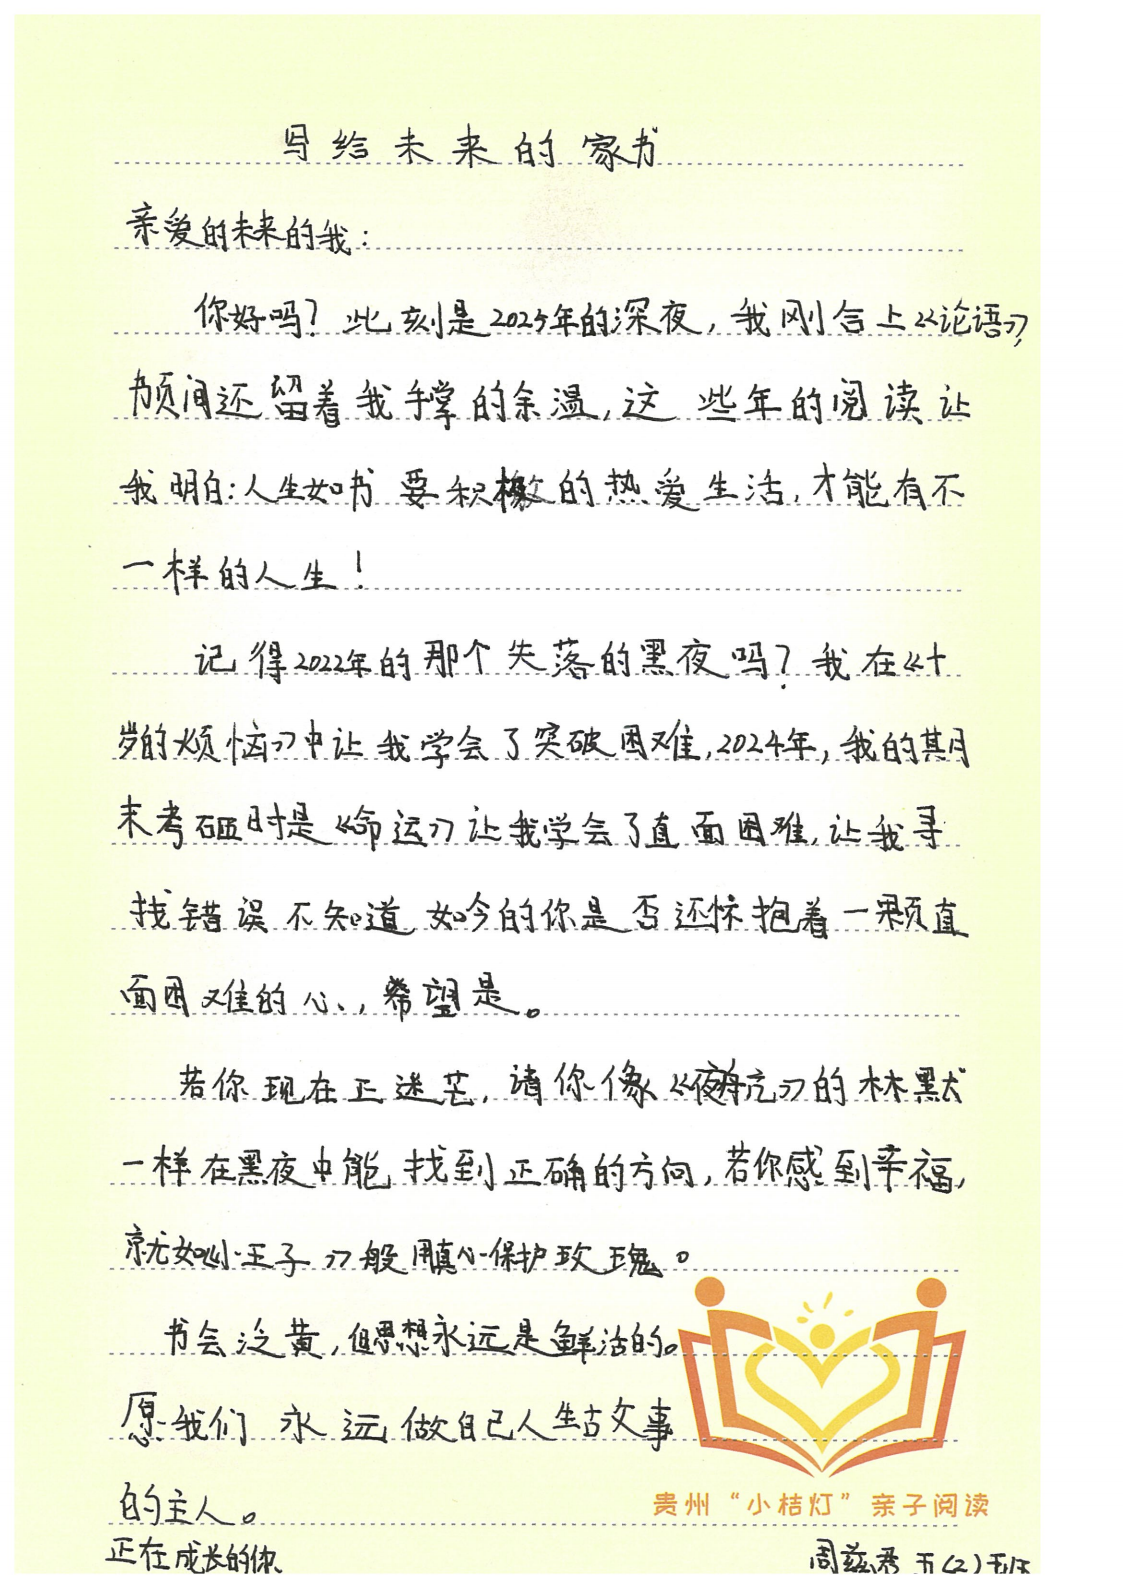 写给未来的家书
亲爱的未来的我：
你好吗？此刻是2025年的深夜，我刚合上《论语》，
书页间还留着我手掌的余温，这些年的阅读让
我明白：人生如书要积极的热爱生活，才能有不
一样的人生！
记得2022年的那个失落的黑夜吗？我在《十
岁的烦恼》中让我学会了突破困难，2024年，我的期
末考砸时是《命运》让我学会了直面困难，让我寻
找错误不知道，如今的你是否还怀抱着一颗直
面困难的心，希望是。
若你现在正迷茫，请你像《夜航》的林默
一样在黑夜中能找到正确的方向，若你感到幸福，
就如《小王子》般用真心保护玫瑰。
书会泛黄，但思想永远是鲜活的。
愿我们永远做自己人生故事
的主人。
贵州“小桔灯”亲子阅读
正在成长的你
周兹秀 五(2)班